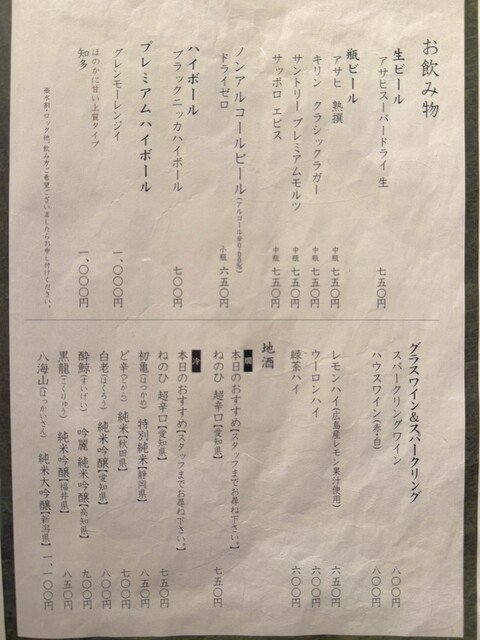 お飲み物
生ビール
アサヒスーパードライ 生 七五〇円
瓶ビール
アサヒ 熟撰 中瓶 七五〇円
キリン クラシックラガー 中瓶 七五〇円
サントリー プレミアムモルツ 中瓶 七五〇円
サッポロ エビス 中瓶 七五〇円
ノンアルコールビール(アルコール分0.00%)
ドライゼロ 小瓶 六五〇円
ハイボール
ブラックニッカハイボール 七〇〇円
プレミアムハイボール
グレンモーレンジイ 一、〇〇〇円
ほのかに甘い上質タイプ
知多 一、〇〇〇円
※水割・ロック他、飲み方ご希望ございましたらお申し付けください。
グラスワイン&スパークリング
スパークリングワイン 八〇〇円
ハウスワイン(赤・白) 八〇〇円
レモンハイ(広島産レモン果汁使用) 六五〇円
ウーロンハイ 六〇〇円
緑茶ハイ 六〇〇円
地酒
燗
本日のおすすめ【スタッフまでお尋ね下さい。】
ねのひ 超辛口【愛知県】 七五〇円
冷
本日のおすすめ【スタッフまでお尋ね下さい。】
ねのひ 超辛口【愛知県】 七五〇円
初亀(はつかめ) 特別純米【静岡県】 八五〇円
ど辛(どから) 純米【秋田県】 七〇〇円
白老(はくろう) 純米吟醸【愛知県】 八〇〇円
酔鯨(すいげい) 吟麗 純米吟醸【高知県】 九〇〇円
黒龍(こくりゅう) 純米吟醸【福井県】 八五〇円
八海山(はっかいさん) 純米大吟醸【新潟県】 一、一〇〇円